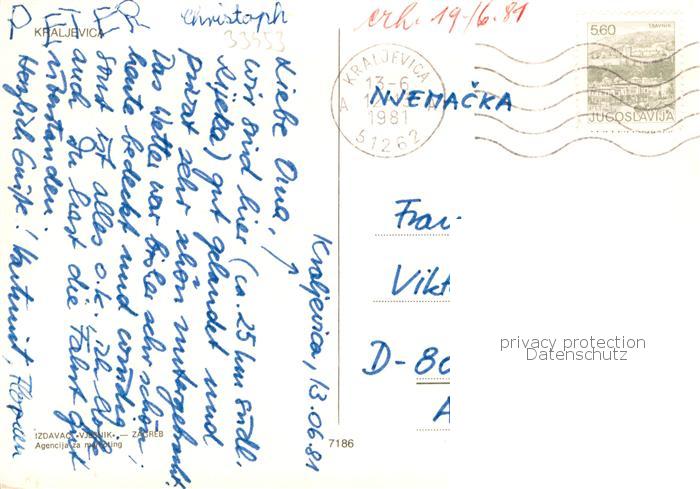 KRALJEVICA
Kraljevica, 13.06.81
Liebe Oma,
wir sind hier (ca. 25 km südl.
Rijeka) gut gelandet und
privat sehr schön untergebracht.
Das Wetter war bisher sehr schön,
heute bedeckt und windig.
Sonst ist alles o.k. Ich hoffe
auch Du hast die Fahrt gut
überstanden.
Herzliche Grüße! Hartmut,
Christoph
33553
erh. 19/6.81
KRALJEVICA
13-6
1981
51262
A
5,60
TRAVNIK
JUGOSLAVIJA
NJEMAČKA
Frau
Vikt
D-80
A
privacy protection
Datenschutz
IZDAVAČ »VJESNIK« — ZAGREB
Agencija za marketing
7186